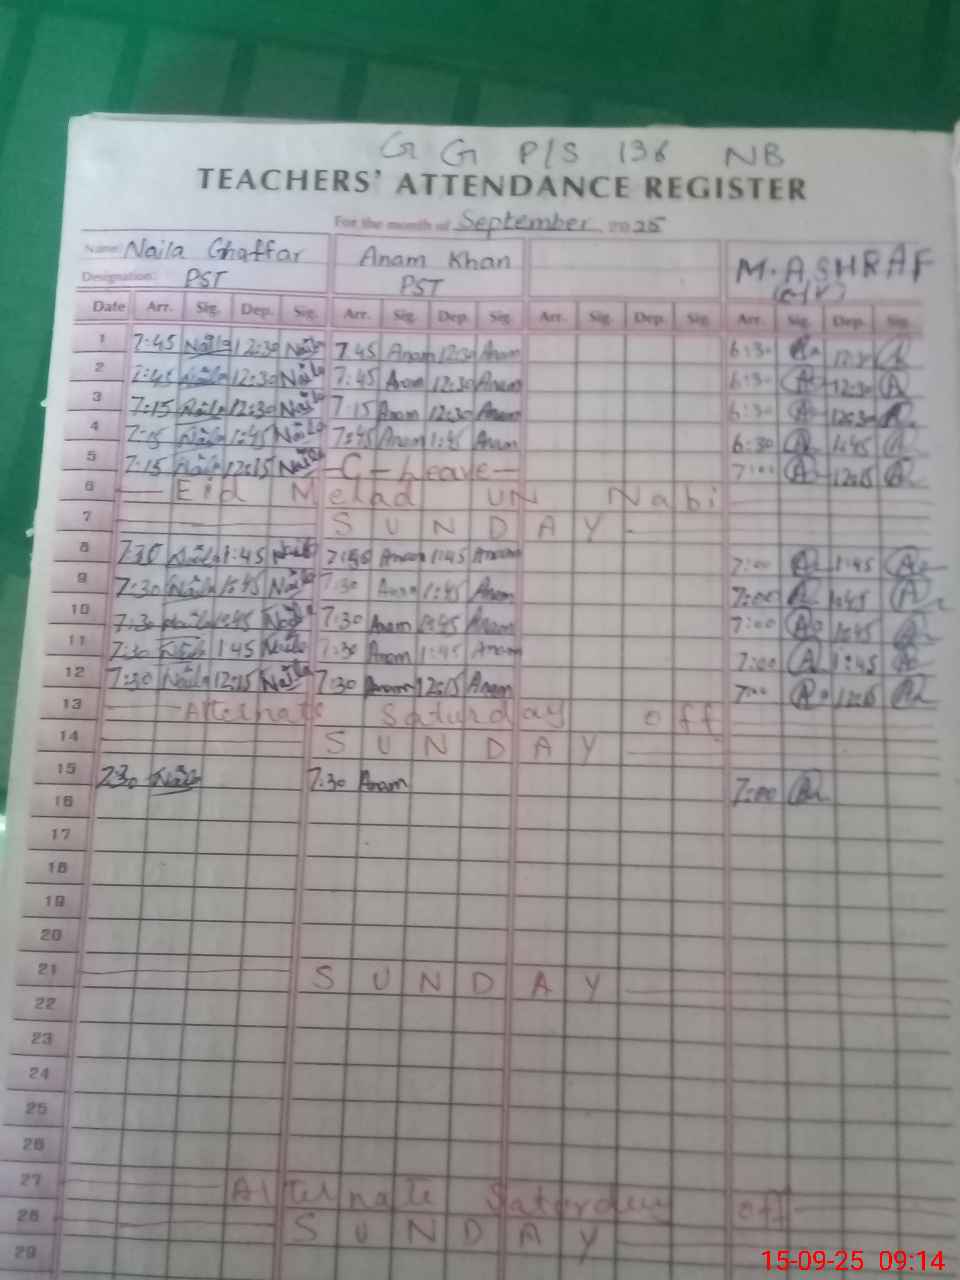 G G P/S 136 NB
TEACHERS' ATTENDANCE REGISTER
For the month of September 2025
Name: Naila Ghaffar Anam Khan M. ASHRAF
Designation: PST PST
Date Arr. Sig. Dep. Sig. Arr. Sig. Dep. Sig. Arr. Sig. Dep. Sig. Arr. Sig. Dep. Sig.
1 7:45 Naila 12:30 Naila 7:45 Anam 12:30 Anam 6:30 12:30
2 7:45 Naila 12:30 Naila 7:45 Anam 12:30 Anam 6:30 A 12:30 A
3 7:15 Naila 12:30 Naila 7:15 Anam 12:30 Anam 6:30 A 12:30
4 7:15 Naila 1:45 Naila 7:45 Anam 1:45 Anam 6:30 1:45
5 7:15 Naila 12:15 Naila - C - Leave - 7:00 A 12:15
6 Eid Melad UN Nabi
7 SUNDAY
8 7:30 Naila 1:45 Naila Anam 1:45 Anam 7:00 1:45
9 7:30 Naila 1:45 Naila 7:30 Anam 1:45 Anam 7:00 1:45
10 7:30 Naila 1:45 Naila 7:30 Anam 1:45 Anam 7:00 1:45
11 7:30 Naila 1:45 Naila 7:30 Anam 1:45 Anam 7:00 A 1:45
12 7:30 Naila 12:15 Naila 7:30 Anam 12:15 Anam 7:00 12:15
13 Alternate Saturday off
14 SUNDAY
15 7:30 Naila 7:30 Anam 7:00
16
17
18
19
20
21 SUNDAY
22
23
24
25
26
27 Alternate Saturday off
28 SUNDAY
29
15-09-25 09:14